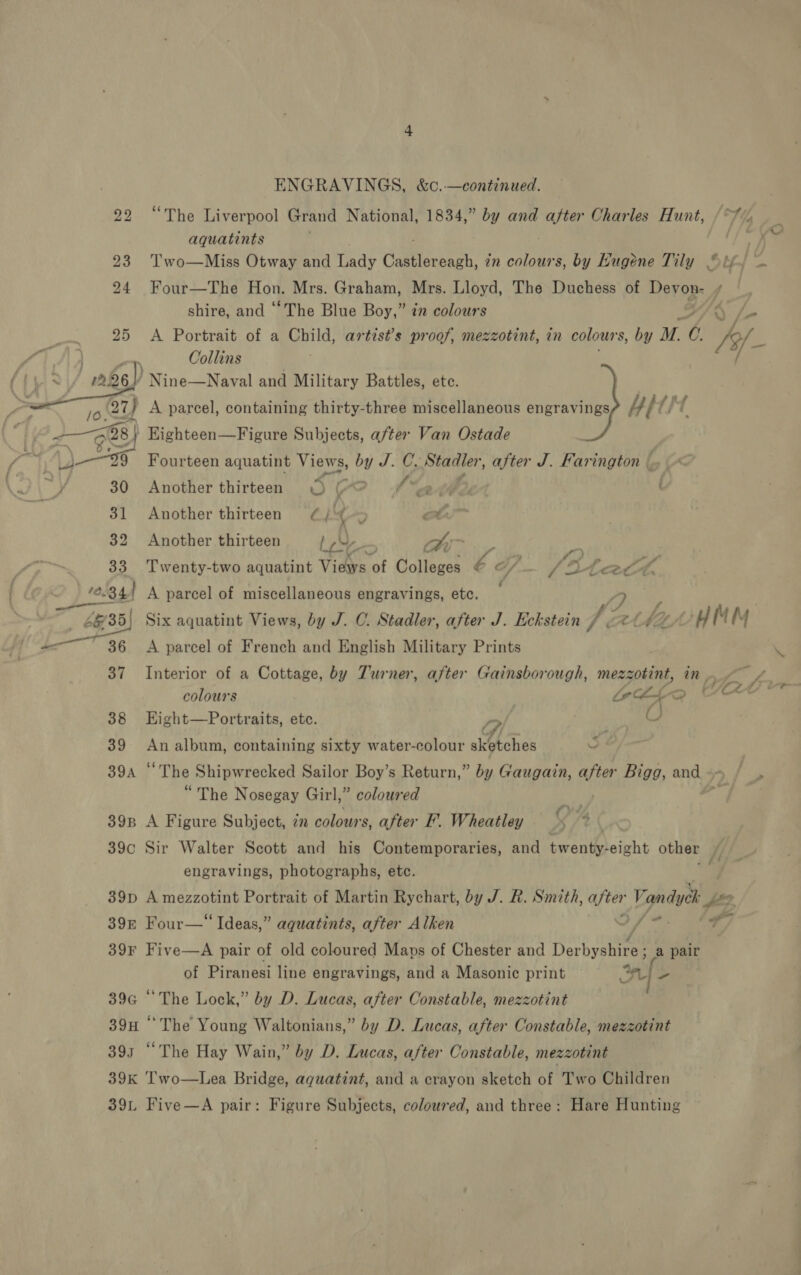 4
ENGRAVINGS, &c.—continued.
22 “The Liverpool Grand National, 1834,” by and after Charles Hunt,
aquatints
23 Two—Miss Otway and Lady Castlereagh, in colours, by Eugène Tily
24 Four—The Hon. Mrs. Graham, Mrs. Lloyd, The Duchess of Devon-
shire, and “The Blue Boy,” in colours
25 A Portrait of a Child, artist's proof, mezzotint, in colours, by M. C.
Collins
26 Nine—Naval and Military Battles, etc.
27 A parcel, containing thirty-three miscellaneous engravings
28 Eighteen—Figure Subjects, after Van Ostade
29 Fourteen aquatint Views, by J. C. Stadler, after J. Farington
30 Another thirteen
31 Another thirteen
32 Another thirteen
33 Twenty-two aquatint Views of Colleges
34 A parcel of miscellaneous engravings, etc.
35 Six aquatint Views, by J. C. Stadler, after J. Eckstein HMM
36 A parcel of French and English Military Prints
37 Interior of a Cottage, by Turner, after Gainsborough, mezzotint, in
colours
38 Eight—Portraits, etc.
39 An album, containing sixty water-colour sketches
39A “The Shipwrecked Sailor Boy's Return,” by Gaugain, after Bigg, and
“The Nosegay Girl,” coloured
39B A Figure Subject, in colours, after F. Wheatley
39C Sir Walter Scott and his Contemporaries, and twenty-eight other
engravings, photographs, etc.
39D A mezzotint Portrait of Martin Rychart, by J. R. Smith, after Vandyck
39E Four—“Ideas,” aquatints, after Alken
39F Five—A pair of old coloured Maps of Chester and Derbyshire; a pair
of Piranesi line engravings, and a Masonic print
39G “The Lock,” by D. Lucas, after Constable, mezzotint
39H “The Young Waltonians,” by D. Lucas, after Constable, mezzotint
39J “The Hay Wain,” by D. Lucas, after Constable, mezzotint
39K Two—Lea Bridge, aquatint, and a crayon sketch of Two Children
39L Five—A pair: Figure Subjects, coloured, and three: Hare Hunting